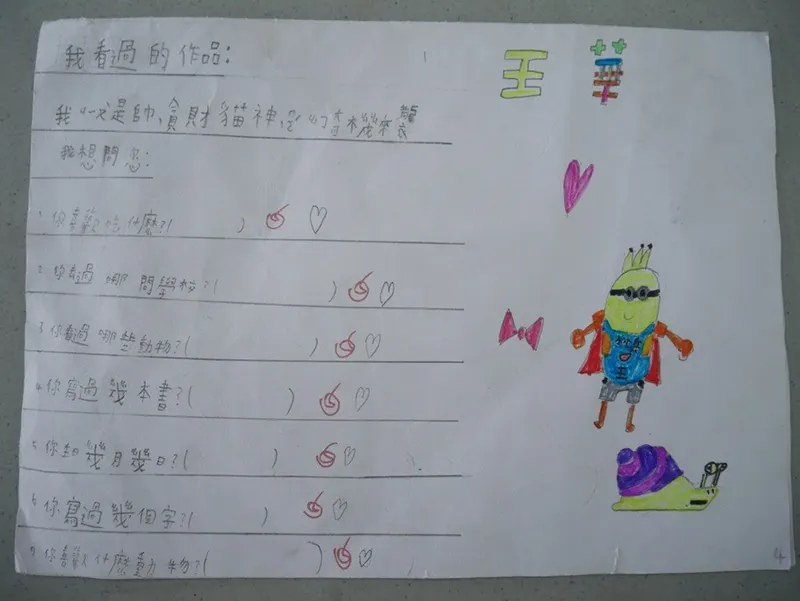 我看過的作品:
王華
我是帥,貪財貓神,恐怖木幾來襲
我想問您:
1.你喜歡吃什麼?( )
2.你去過哪間學校?( )
3.你看過哪些動物?( )
4.你寫過幾本書?( )
5.你生日幾月幾日?( )
6.你寫過幾個字?( )
7.你喜歡什麼動物?( )
4